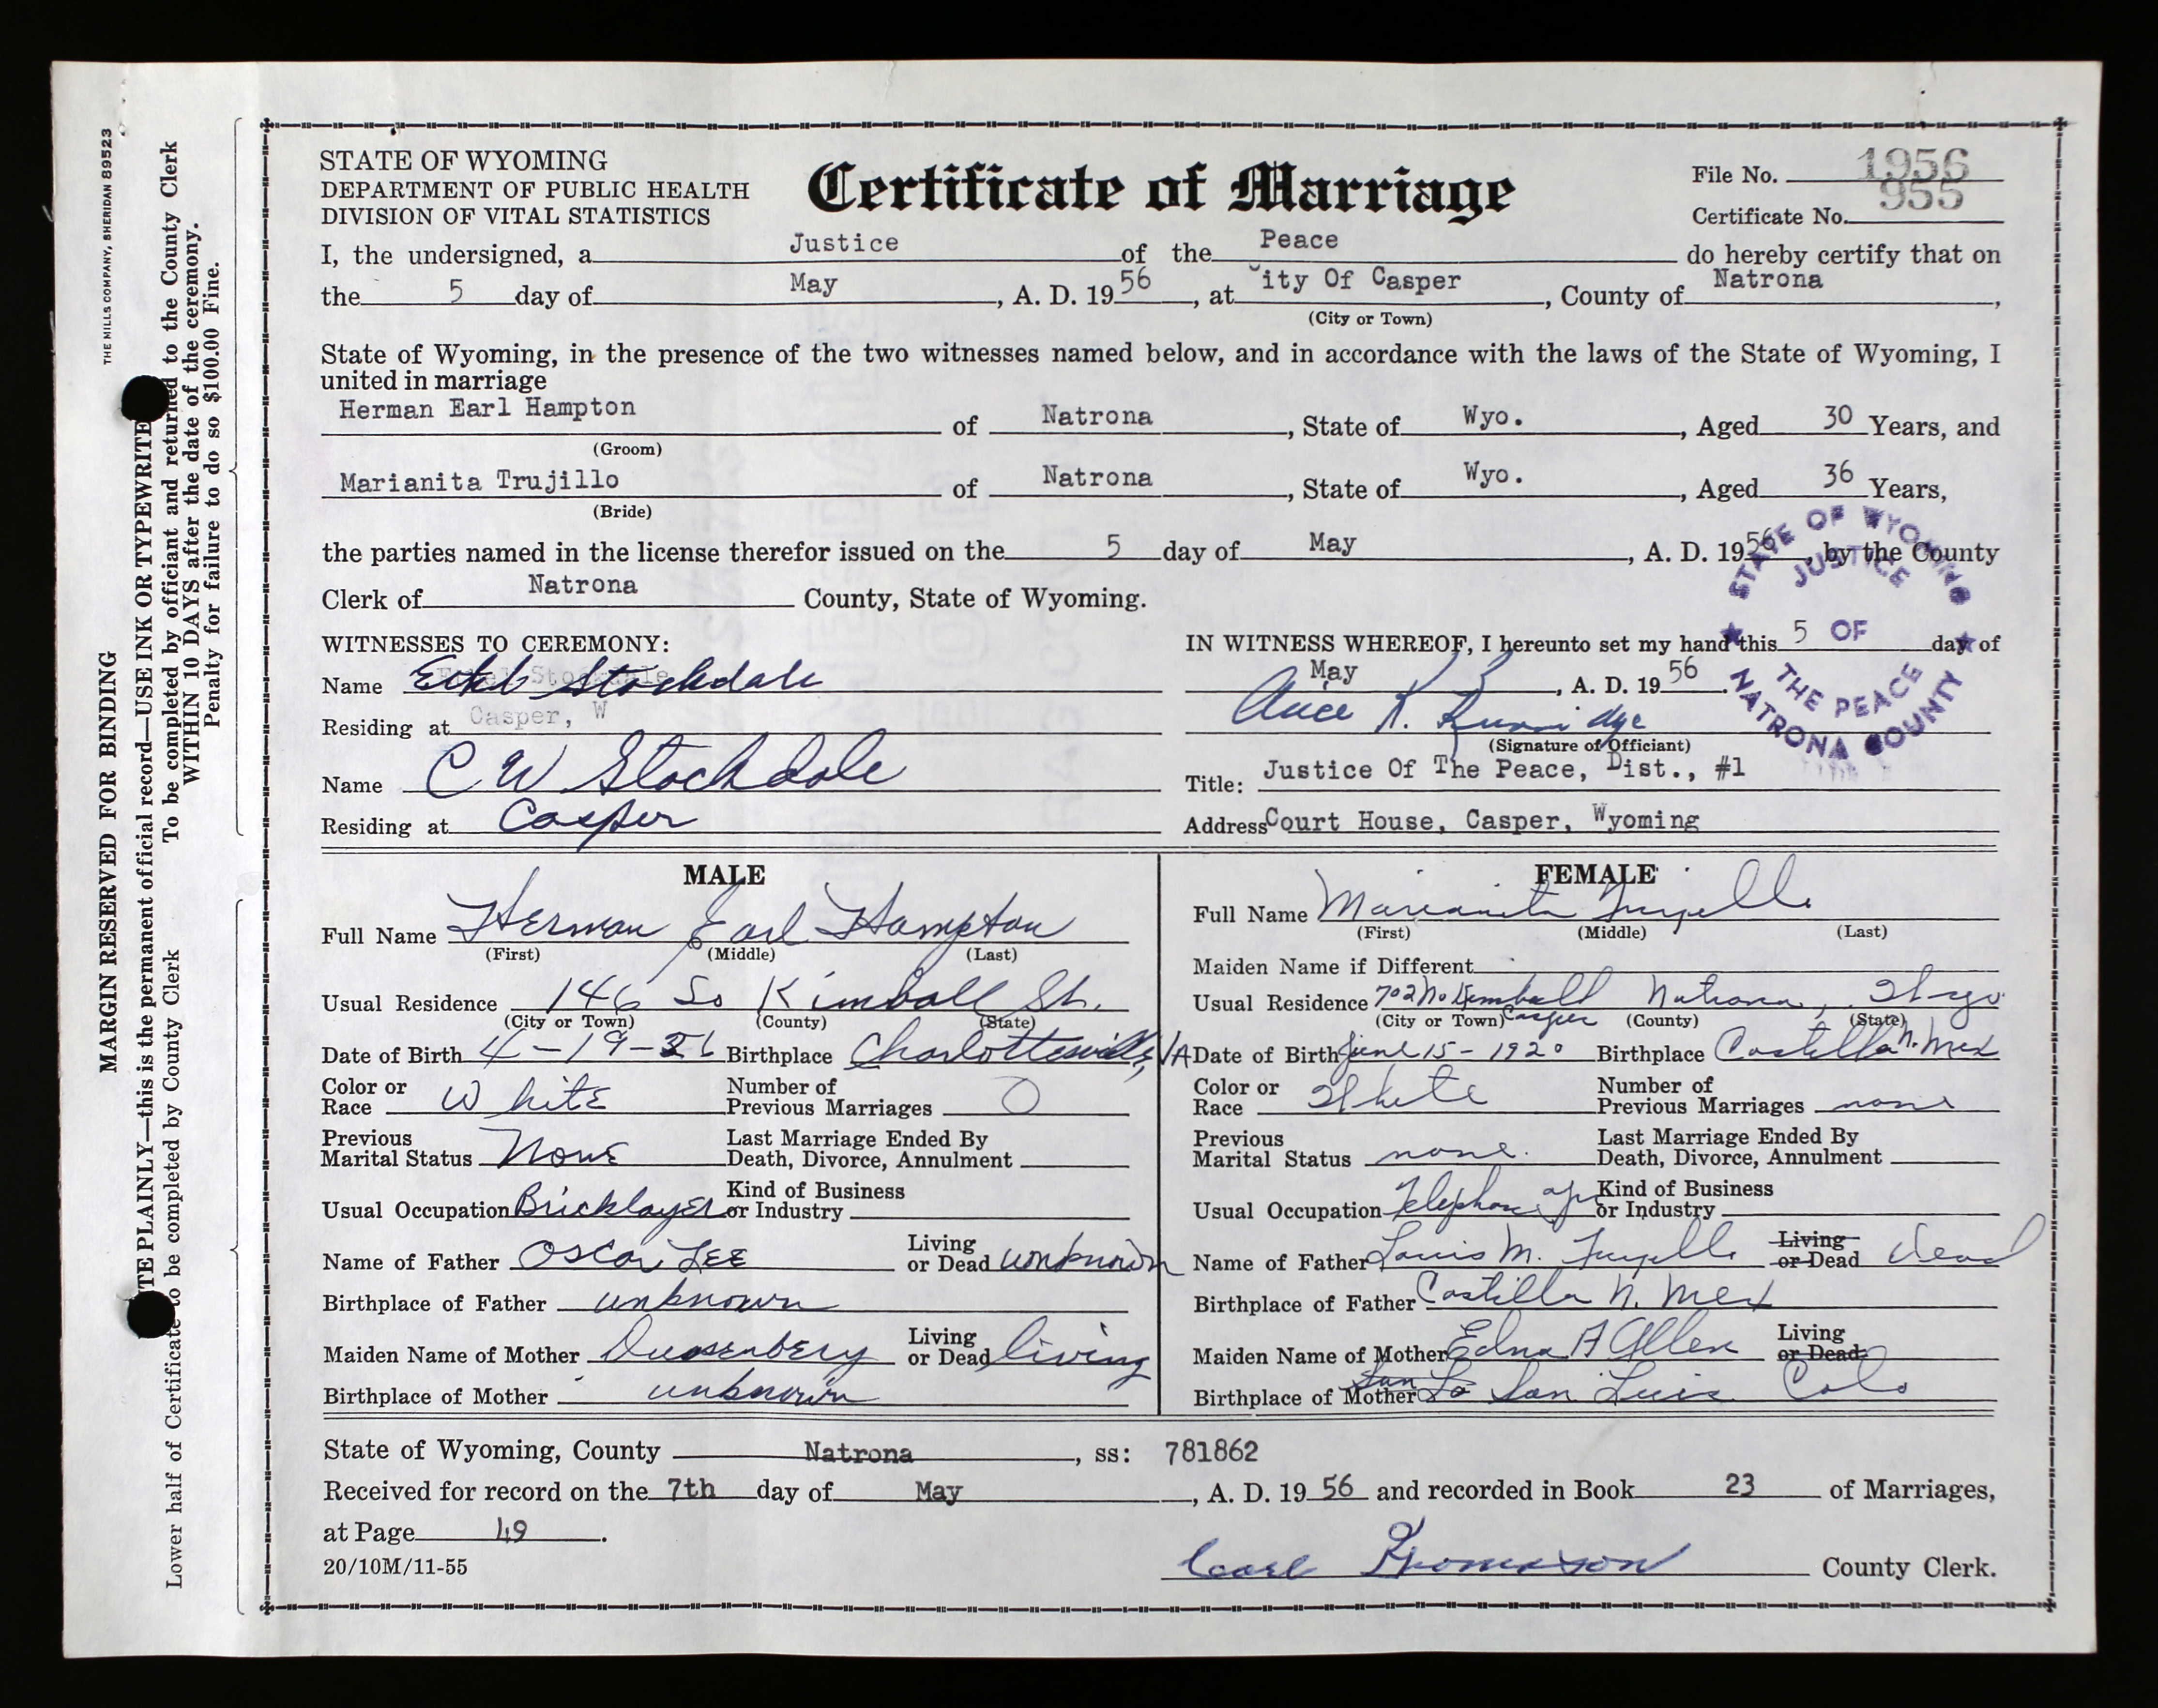 STATE OF WYOMING
DEPARTMENT OF PUBLIC HEALTH
DIVISION OF VITAL STATISTICS
Certificate of Marriage
File No. 1956
Certificate No. 955
I, the undersigned, a Justice of the Peace do hereby certify that on
the 5 day of May, A. D. 19 56, at City Of Casper, County of Natrona,
(City or Town)
State of Wyoming, in the presence of the two witnesses named below, and in accordance with the laws of the State of Wyoming, I
united in marriage
Herman Earl Hampton of Natrona, State of Wyo., Aged 30 Years, and
(Groom)
Marianita Trujillo of Natrona, State of Wyo., Aged 36 Years,
(Bride)
the parties named in the license therefor issued on the 5 day of May, A. D. 19 56, by the County
Clerk of Natrona County, State of Wyoming.
STATE OF WYOMING
JUSTICE
OF
THE PEACE
NATRONA COUNTY
WITNESSES TO CEREMONY:
Name Ethel Stockdale
Residing at Casper, W
Name C W Stockdale
Residing at Casper
IN WITNESS WHEREOF, I hereunto set my hand this 5 day of
May, A. D. 19 56.
Alice K.
(Signature of Officiant)
Title: Justice Of The Peace, Dist., #1
Address Court House, Casper, Wyoming
MALE
Full Name Herman Earl Hampton
(First) (Middle) (Last)
Usual Residence 146 So Kimball St.
(City or Town) (County) (State)
Date of Birth 4-19-26 Birthplace Charlottesville, VA
Color or Race White Number of Previous Marriages 0
Previous Marital Status None Last Marriage Ended By Death, Divorce, Annulment
Usual Occupation Bricklayer Kind of Business or Industry
Name of Father Oscar Lee Living or Dead unknown
Birthplace of Father unknown
Maiden Name of Mother Duesenbery Living or Dead living
Birthplace of Mother unknown
FEMALE
Full Name Marianita Trujillo
(First) (Middle) (Last)
Maiden Name if Different
Usual Residence 702 No Kimball Casper Natrona, Wyo
(City or Town) (County) (State)
Date of Birth June 15 - 1920 Birthplace Costilla N. Mex
Color or Race White Number of Previous Marriages none
Previous Marital Status none. Last Marriage Ended By Death, Divorce, Annulment
Usual Occupation Telephone Opr Kind of Business or Industry
Name of Father Louis M. Trujillo Living or Dead dead
Birthplace of Father Costilla N. Mex
Maiden Name of Mother Edna A Allen Living or Dead
Birthplace of Mother San Luis Colo
State of Wyoming, County Natrona, ss: 781862
Received for record on the 7th day of May, A. D. 19 56 and recorded in Book 23 of Marriages,
at Page 49.
20/10M/11-55
Carl Thomason County Clerk.
THE MILLS COMPANY, SHERIDAN 89523
MARGIN RESERVED FOR BINDING
TE PLAINLY—this is the permanent official record—USE INK OR TYPEWRITE
To be completed by officiant and returned to the County Clerk
WITHIN 10 DAYS after the date of the ceremony.
Penalty for failure to do so $100.00 Fine.
Lower half of Certificate to be completed by County Clerk